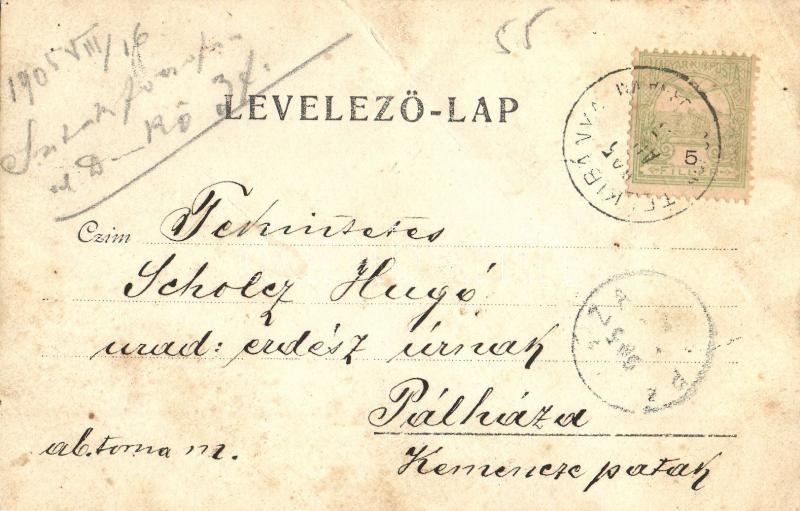 55
1905 VIII/16
LEVELEZŐ-LAP
MAGYAR KIR. POSTA
5
FILLÉR
TELKIBÁNYA
905
Czim Tekintetes
Scholcz Hugó
urad: erdész úrnak
Pálháza
ab.torna m.
Kemencze patak